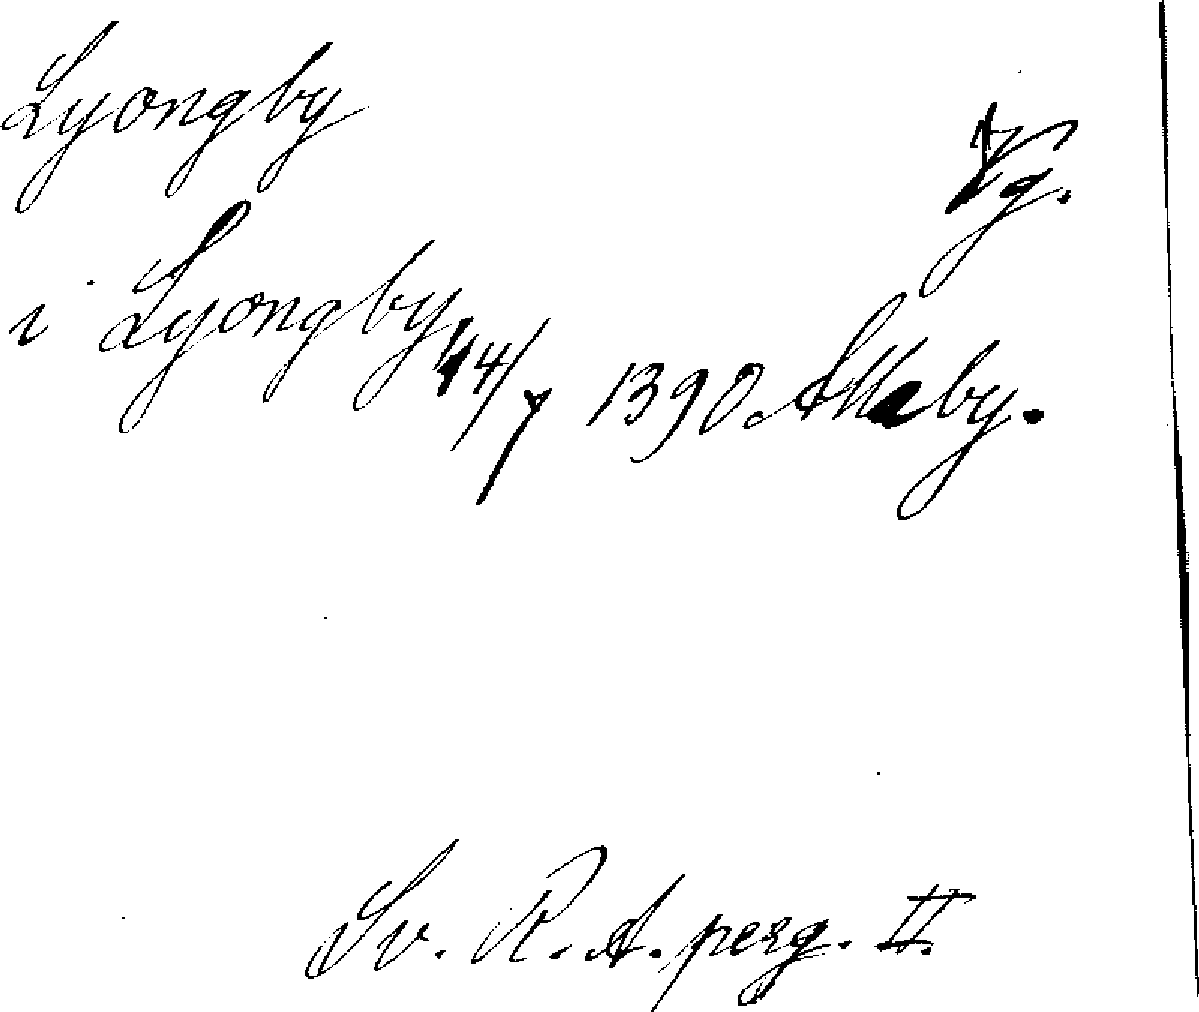 Lyongby
Vg.
i Lyongby 14/7 1390. Alleby.
Sv. R. A. perg. II.